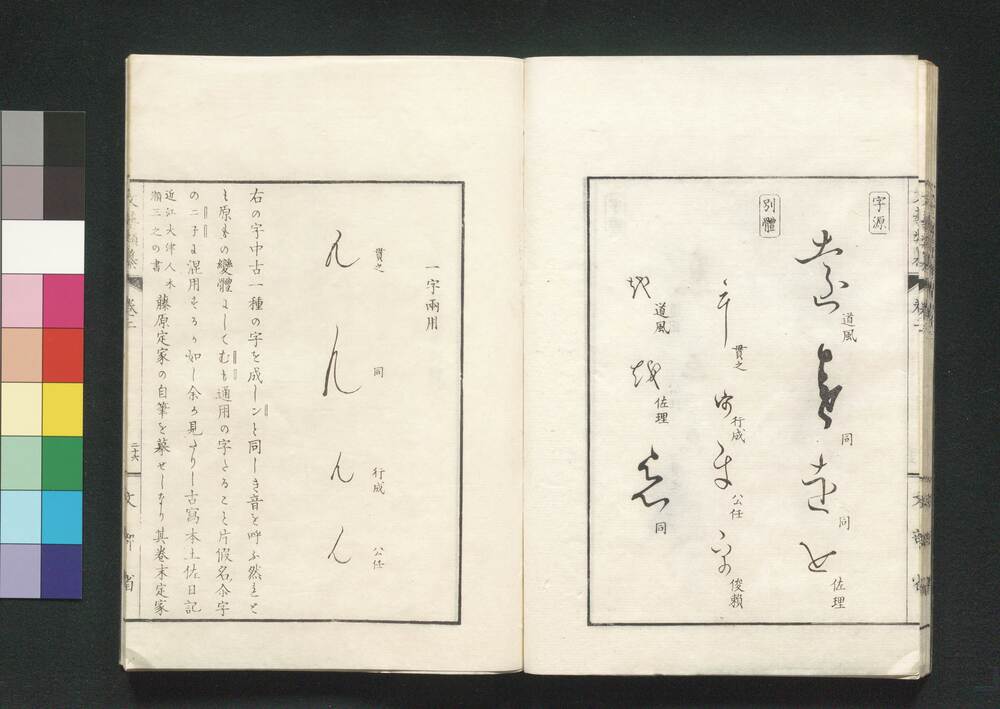 字源
遠 道風
遠 同
遠 同
を 佐理
別體
乎 貫之
行成
公任
俊頼
越 道風
越 佐理
同
一字兩用
ん 貫之
ん 同
ん 行成
ん 公任
右の字中古一種の字を成しンと同しき音を呼ふ然れと
も原もの變體にしてむも通用の字たること片假名尒字
の二子に混用せるか如し余か見たりし古寫本土佐日記
近江大津人木
瀬三之の書
藤原定家の自筆を摹せしなり其卷末定家
二十六
文部省
卷二